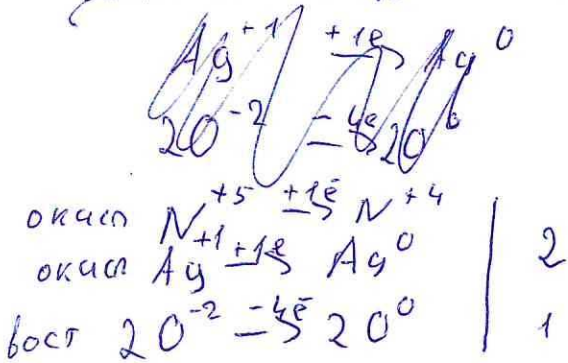 Ag⁺¹ +1e→ Ag⁰
2O⁻² -4e→ 2O⁰
окисл N⁺⁵ +1ē→ N⁺⁴
окисл Ag⁺¹ +1e→ Ag⁰ | 2
вост 2O⁻² -4ē→ 2O⁰ | 1